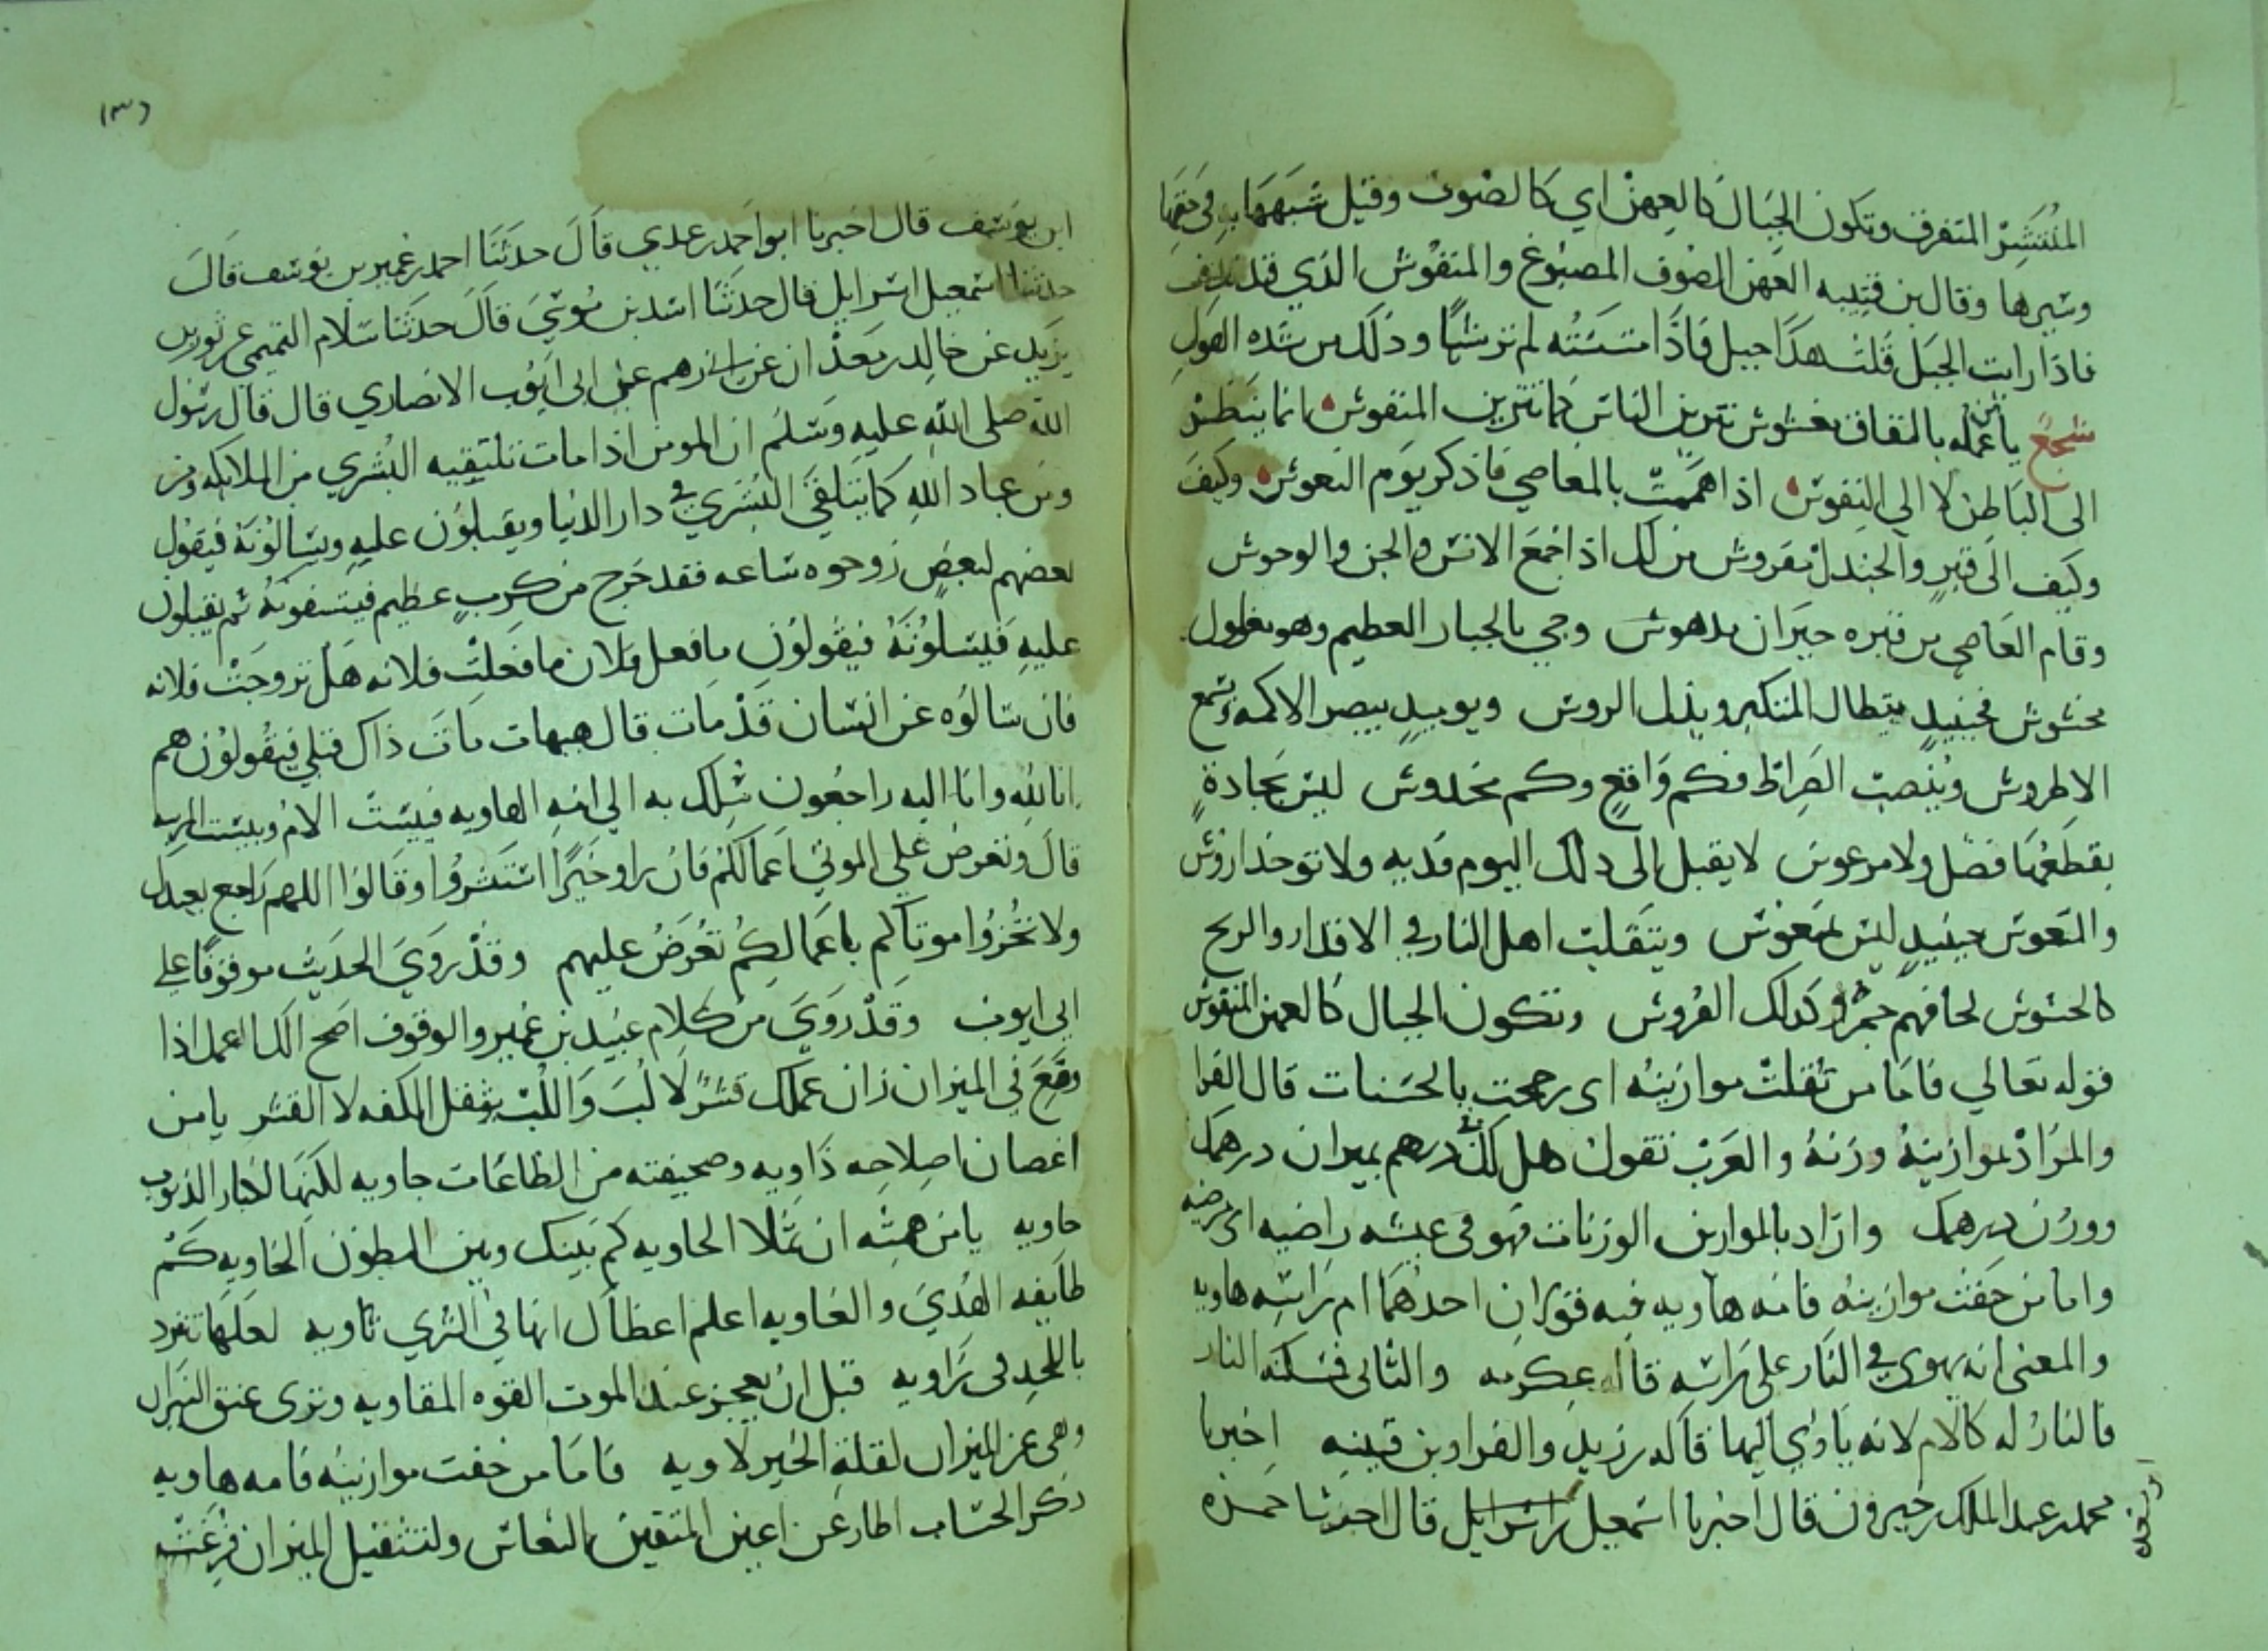 المنتشر المتفرق وتكون الجبال كالعهن اي كالصوف وقيل شبهها به في خفتها
وسيرها وقال بن قتيبه العهن الصوف المصبوغ والمنفوش الذي قد ندف
فاذا رايت الجبل قلت هذا جبل فاذا مسسته لم تر شيا وذلك من شده الهول
سجع يا من عمله بالنفاق مغشوش تتزين للناس كما تتزين المنقوش انما ينظر
الى الباطن لا الي النقوش اذا هممت بالمعاصي فاذكر يوم النعوش وكيف
وكيف الى قبر والجندل مفروش من لك اذا جمع الانس والجن والوحوش
وقام العاصي من قبره حيران مدهوش وجي بالجبار العظيم وهو مغلول
مخشوش فحينيد يتطال المتكبر ويذل الروس ويوميد يبصر الاكمه ويسمع
الاطروش وينصب الصراط فكم واقع وكم مخدوش ليس بجادة
يقطعها فضل ولا مرعوش لا يقبل الى ذلك اليوم فديه ولا توخذ اروش
والتعوس حينيد ليس بمنعوش ويتقلب اهل النار في الاقدار والريح
كالحشوش لحافهم جمر وكذلك الفروش وتكون الجبال كالعهن المنفوش
قوله تعالي فاما من ثقلت موازينه اى رجحت بالحسنات قال الفرا
والمراد بموازينه وزنه والعرب تقول هل لك في درهم بميزان درهمك
ووزن درهمك واراد بالموازين الوزنات فهو في عيشه راضيه اى مرضيه
واما من خفت موازينه فامه هاويه فيه قولان احدهما ام راسه هاويه
والمعنى انه يهوى في النار على راسه قاله عكرمه والثانى فمسكنه النار
فالنار له كالام لانه ياوي اليها قاله بن زيد والفرا وبن قتيبه اخبرنا
محمد بن عبد الملك بن خيرون قال اخبرنا اسمعيل قال احدثنا حمزه
ابن يوسف قال اخبرنا ابو احمد بن عدي قال حدثنا احمد بن عمير بن يوسف قال
حدثنا اسمعيل اسرايل قال حدثنا اسد بن موسي قال حدثنا سلام التميمي عن ثور بن
يزيد عن خالد بن معدان عن ابى رهم عن ابى ايوب الانصاري قال قال رسول
الله صلى الله عليه وسلم ان المومن اذا مات تلتقيه البشري من الملايكه ومن
ومن عباد الله كما يتلقى البشري في دار الدنيا ويقبلون عليه ويسالونه فيقول
بعضهم لبعض روحوه ساعه فقد خرج من كرب عظيم ثم يقبلون
عليه فيسلونه فيقولون ما فعل فلان ما فعلت فلانه هل تزوجت فلانه
فان سالوه عن انسان قد مات قال هيهات مات ذاك قبلي فيقولون هم
انا لله وانا اليه راجعون سلك به الي امه الهاويه فبيست الام وبيست المربيه
قال وتعرض علي الموتي اعمالكم فان راو خيرا استبشروا وقالوا اللهم راجع بعبدك
ولا تخزوا موتاكم باعمالكم تعرض عليهم وقد روي الحديث موقوفا على
ابي ايوب وقد روي من كلام عبيد بن عمير والوقوف اصح اعمل اذا
وقع في الميزان زان عملك قشر لا لب واللب يثقل الكفه لا القشر يا من
اغصان اصلاحه ذاويه وصحيفته من الطاعات خاويه لكنها لكبار الذنوب
حاويه يا من همته ان تملا الحاويه كم بينك وبين البطون الخاويه كم
طايفه الهدي والغاويه اعلم اعظاك انها في الثري ثاويه لعلها تفرد
باللحد فى زاويه قبل ان يعجز عند الموت القوه المقاويه وترى عنق الميزان
وهى عن الميزان لقلة الخير لاويه فاما من خفت موازينه فامه هاويه
ذكر الحساب اطار عن اعين المتقين النعاس ولتثقيل الميزان فرغت